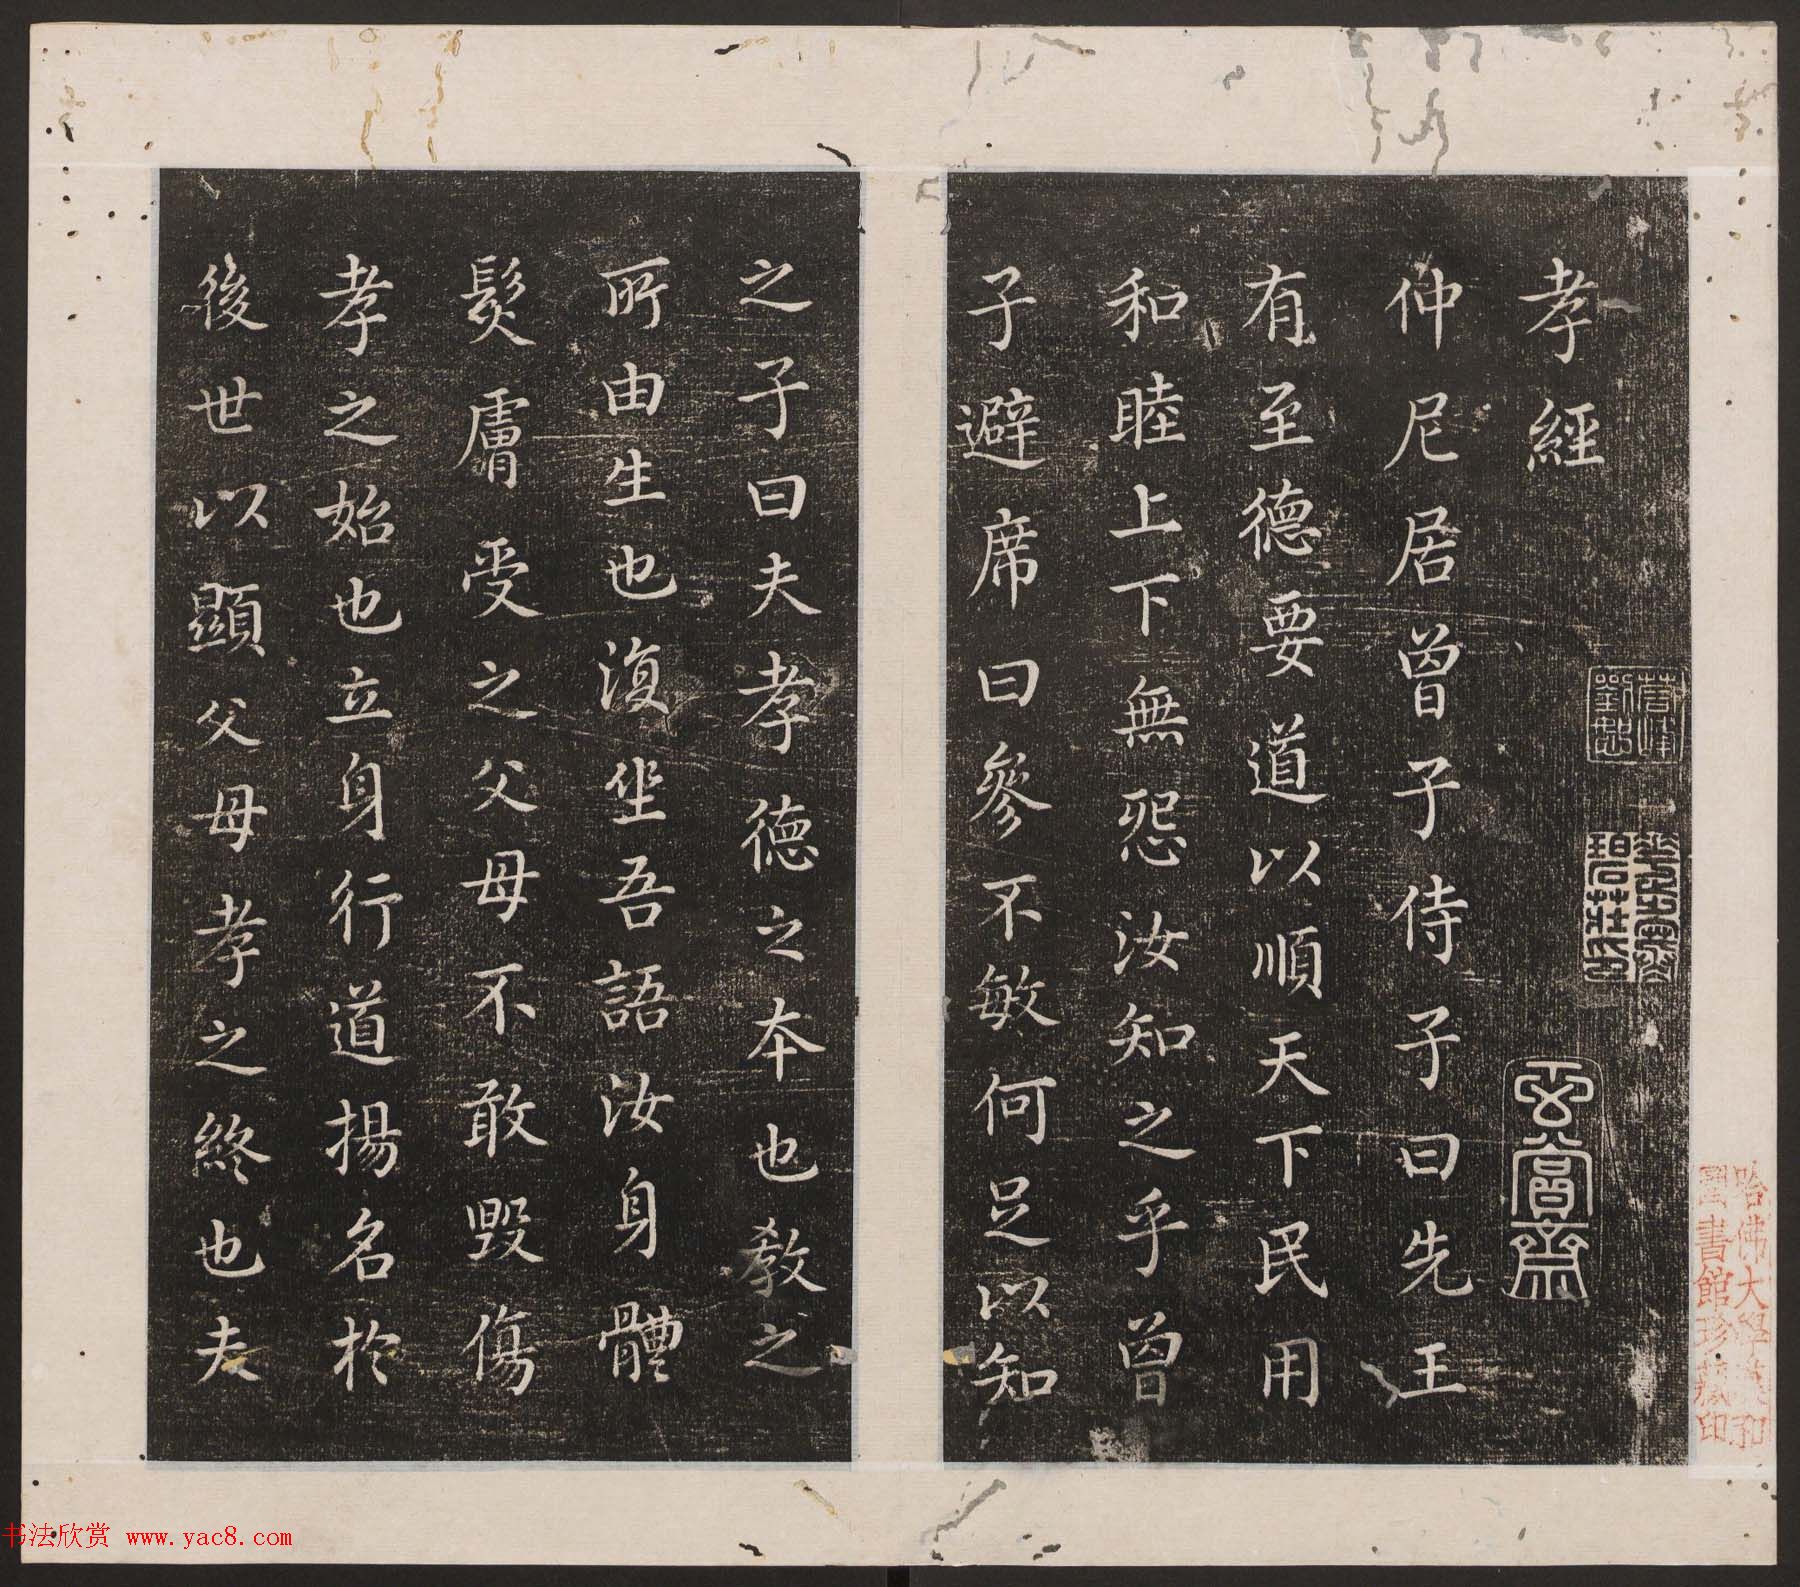 孝經
仲尼居曾子侍子曰先王
有至德要道以順天下民用
和睦上下無怨汝知之乎曾
子避席曰參不敏何足以知
之子曰夫孝德之本也教之
所由生也復坐吾語汝身體
髮膚受之父母不敢毀傷
孝之始也立身行道揚名於
後世以顯父母孝之終也夫
玄賞齋
哈佛大學漢和
圖書館珍藏印
书法欣赏 www.yac8.com